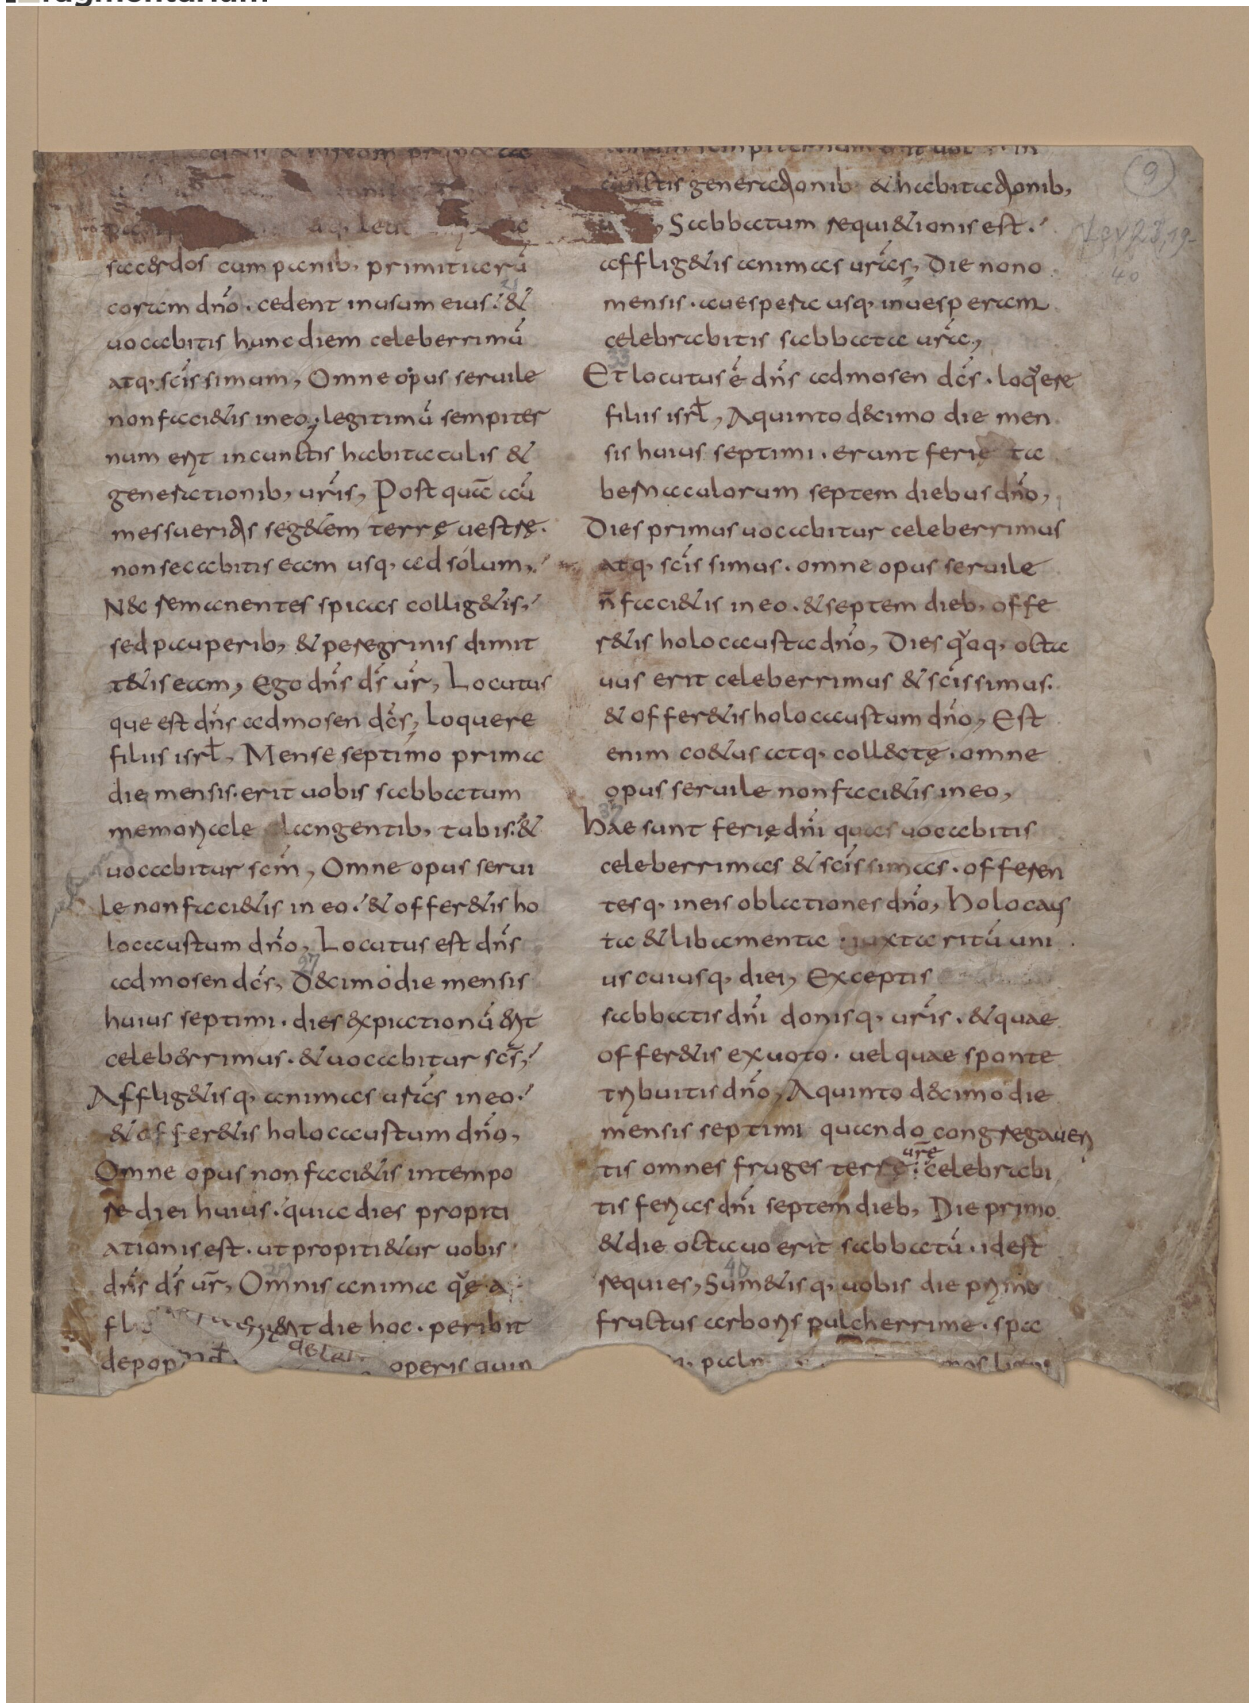 sacerdos cum panib; primitiarū
coram dnō. cedent in usum eius. &
uocabitis hunc diem celeberrimū
atq; scissimum, Omne opus seruile
non faci&is in eo, legitimū sempiter
num erit in cunctis habitaculis &
generationib; uris, Post quā aū
messueritis seg&em terrę uestrę.
non secabitis eam usq; ad solum,
Nec remanentes spicas collig&is,
sed pauperib; & peregrinis dimit
t&is eam, Ego dns ds ur, Locutus
que est dns ad mosen dcs, loquere
filiis isrl, Mense septimo prima
die mensis. erit uobis sabbatum
memoriale clangentib; tubis. &
uocabitur scm, Omne opus serui
le non faci&is in eo. & offer&is ho
locaustum dno, Locutus est dns
ad mosen dcs, 27 Decimo die mensis
huius septimi. dies expiationū erit
celeberrimus. & uocabitur scs,
Afflig&isq; animas uras in eo.
& offer&is holocaustum dno,
Omne opus non faci&is in tempo
re diei huius. quia dies propiti
ationis est. ut propiti&ur uobis
dns ds ur, Omnis anima quę a
die hoc. peribit
delat
operis quip
sempiternum erit in
cunctis generationib; & habitationib;
Sabbatum requi&ionis est.
afflig&is animas uras, Die nono
mensis. a uespera usq; in uesperam
celebrabitis sabbata ura,
33
Et locutus ē dns ad mosen dcs. loquere
filiis isrl, A quinto decimo die men
sis huius septimi. erunt ferię ta
bernaculorum septem diebus dno,
Dies primus uocabitur celeberrimus
atq; scissimus. omne opus seruile
n̄ faci&is in eo. & septem dieb; offe
r&is holocausta dno, Dies quoq; octa
uus erit celeberrimus & scissimus.
& offer&is holocaustum dno, Est
enim co&us atq; collectę. omne
opus seruile non faci&is in eo,
37
Hae sunt ferię dni quas uocabitis
celeberrimas & scissimas. offeren
tesq; in eis oblationes dno, Holocaus
ta & libamenta iuxta ritū uni
us cuiusq; diei, Exceptis
sabbatis dni donisq; uris. & quae
offer&is ex uoto. uel quae sponte
tribuitis dno, A quinto decimo die
mensis septimi quando congregaueri
tis omnes fruges terrę urę celebrabi
tis ferias dni septem dieb; Die primo
& die octauo erit sabbatū. id est
requies, 40 Sum&isq; uobis die primo
fructus arboris pulcherrime. spa
9
Lev 23,19-
40